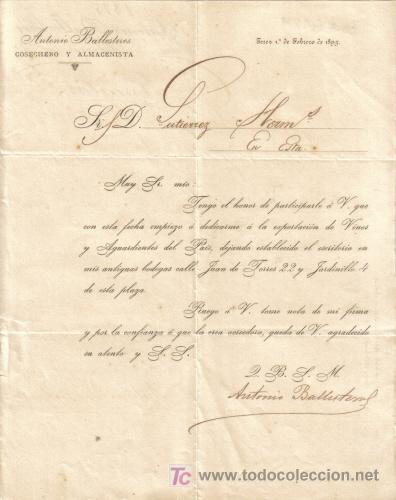 Antonio Ballesteros
COSECHERO Y ALMACENISTA
Jerez 1º de Febrero de 1895.
Sr. D. Gutierrez Herm.s
En Esta
Muy Sr. mio:
Tengo el honor de participarle á V. que
con esta fecha empiezo á dedicarme á la esportacion de Vinos
y Aguardientes del Pais, dejando establecido el escritorio en
mis antiguas bodegas calle Juan de Torres 22 y Jardinillo 4
de esta plaza.
Ruego á V. tome nota de mi firma
y por la confianza á que la crea acreedora, queda de V. agradecido
su atento y S. S.
Q. B. S. M.
Antonio Ballesteros
TC todocoleccion
www.todocoleccion.net